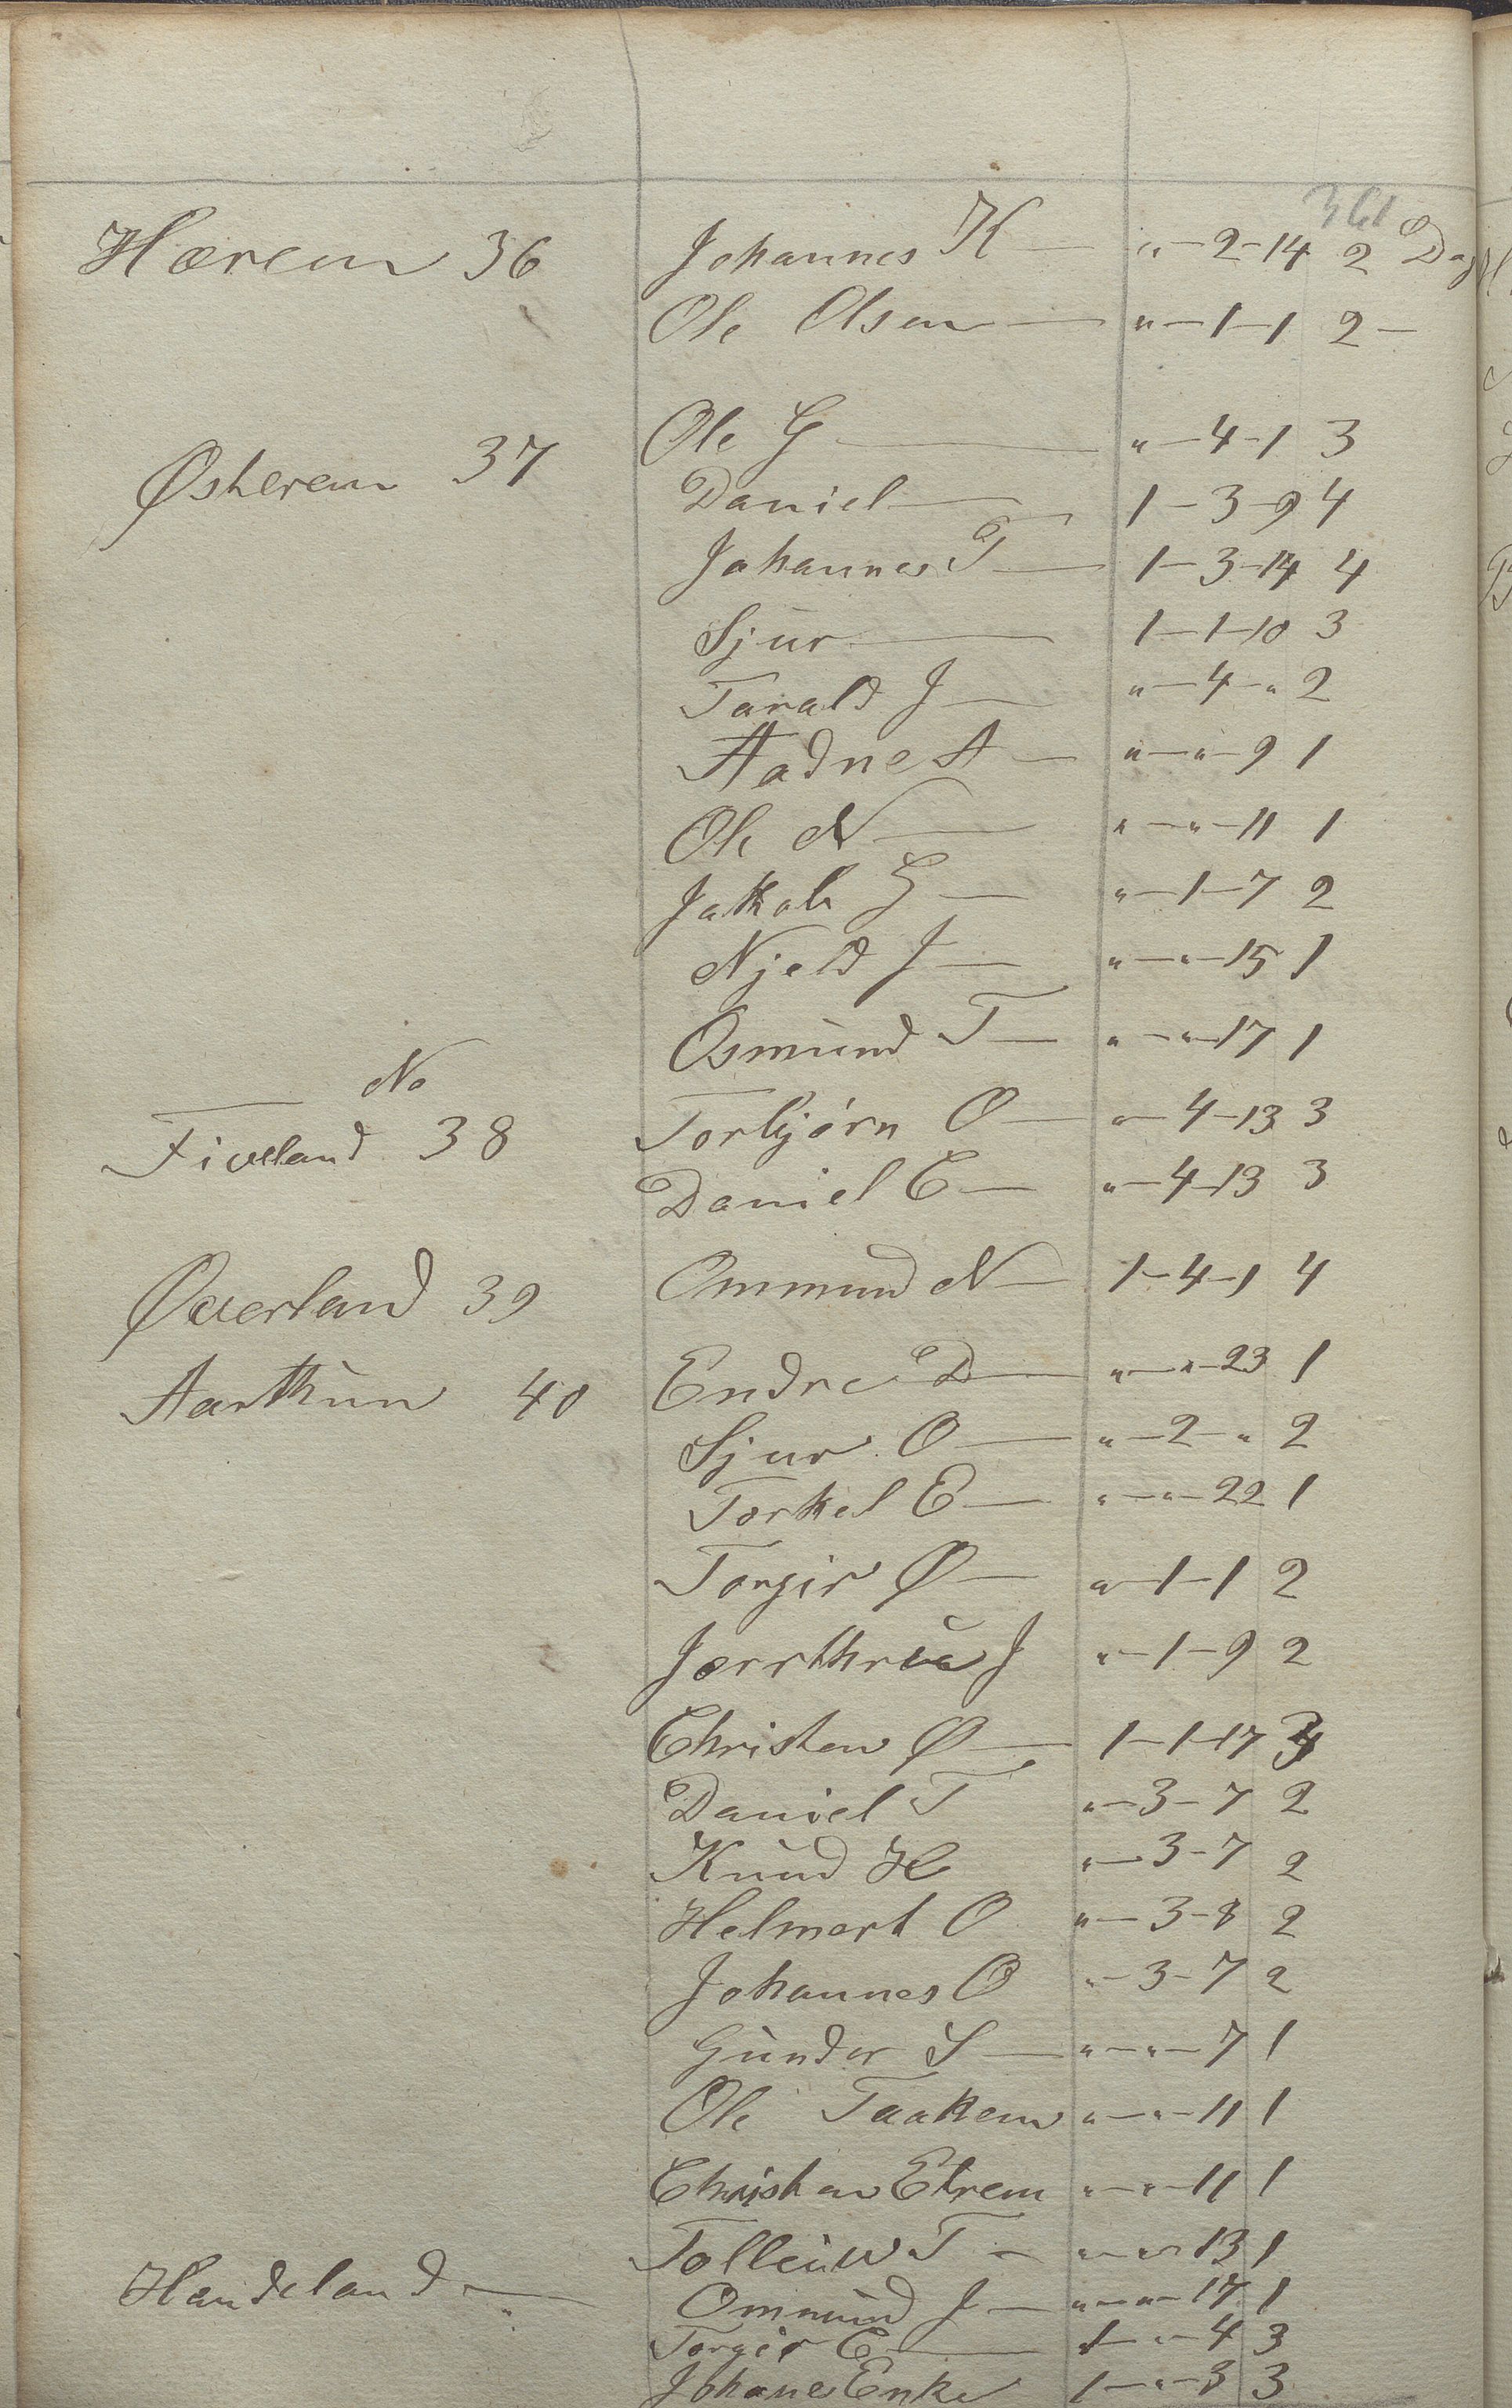 361
Hærem 36 Johannes K — " - 2 - 14 2 Dag
Ole Olsen — " - 1 - 1 2 -
Ole G — " - 4 - 1 3
Østerem 37 Daniel — 1 - 3 - 9 4
Johannes T — 1 - 3 - 14 4
Sjur — 1 - 1 - 10 3
Tarald J — " - 4 - " 2
Aadne A — " - " - 9 1
Ole N — " - " - 11 1
Jakob G — " - 1 - 7 2
Njeld J — " - " - 15 1
Osmund T — " - " - 17 1
No
Fiveland 38 Torbjørn O — " - 4 - 13 3
Daniel E — " - 4 - 13 3
Øverland 39 Ommund N — 1 - 4 - 1 4
Aarthun 40 Endre D — " - " - 23 1
Sjur O — " - 2 - " 2
Torkel E — " - " - 22 1
Torgir Ø — " - 1 - 1 2
J — " - 1 - 9 2
Christen Ø — 1 - 1 - 17
Daniel T " - 3 - 7 2
Knud H " - 3 - 7 2
Helmert O " - 3 - 8 2
Johannes O " - 3 - 7 2
Gunder S — " - " - 7 1
Ole Taakem " - " - 11 1
Christen Etrem " - " - 11 1
Tolleiv T - " - " - 13 1
Handeland — Ommund J — " - " - 17 1
Torgir E — 1 - " - 4 3
Johanes Enke 1 - " - 3 3